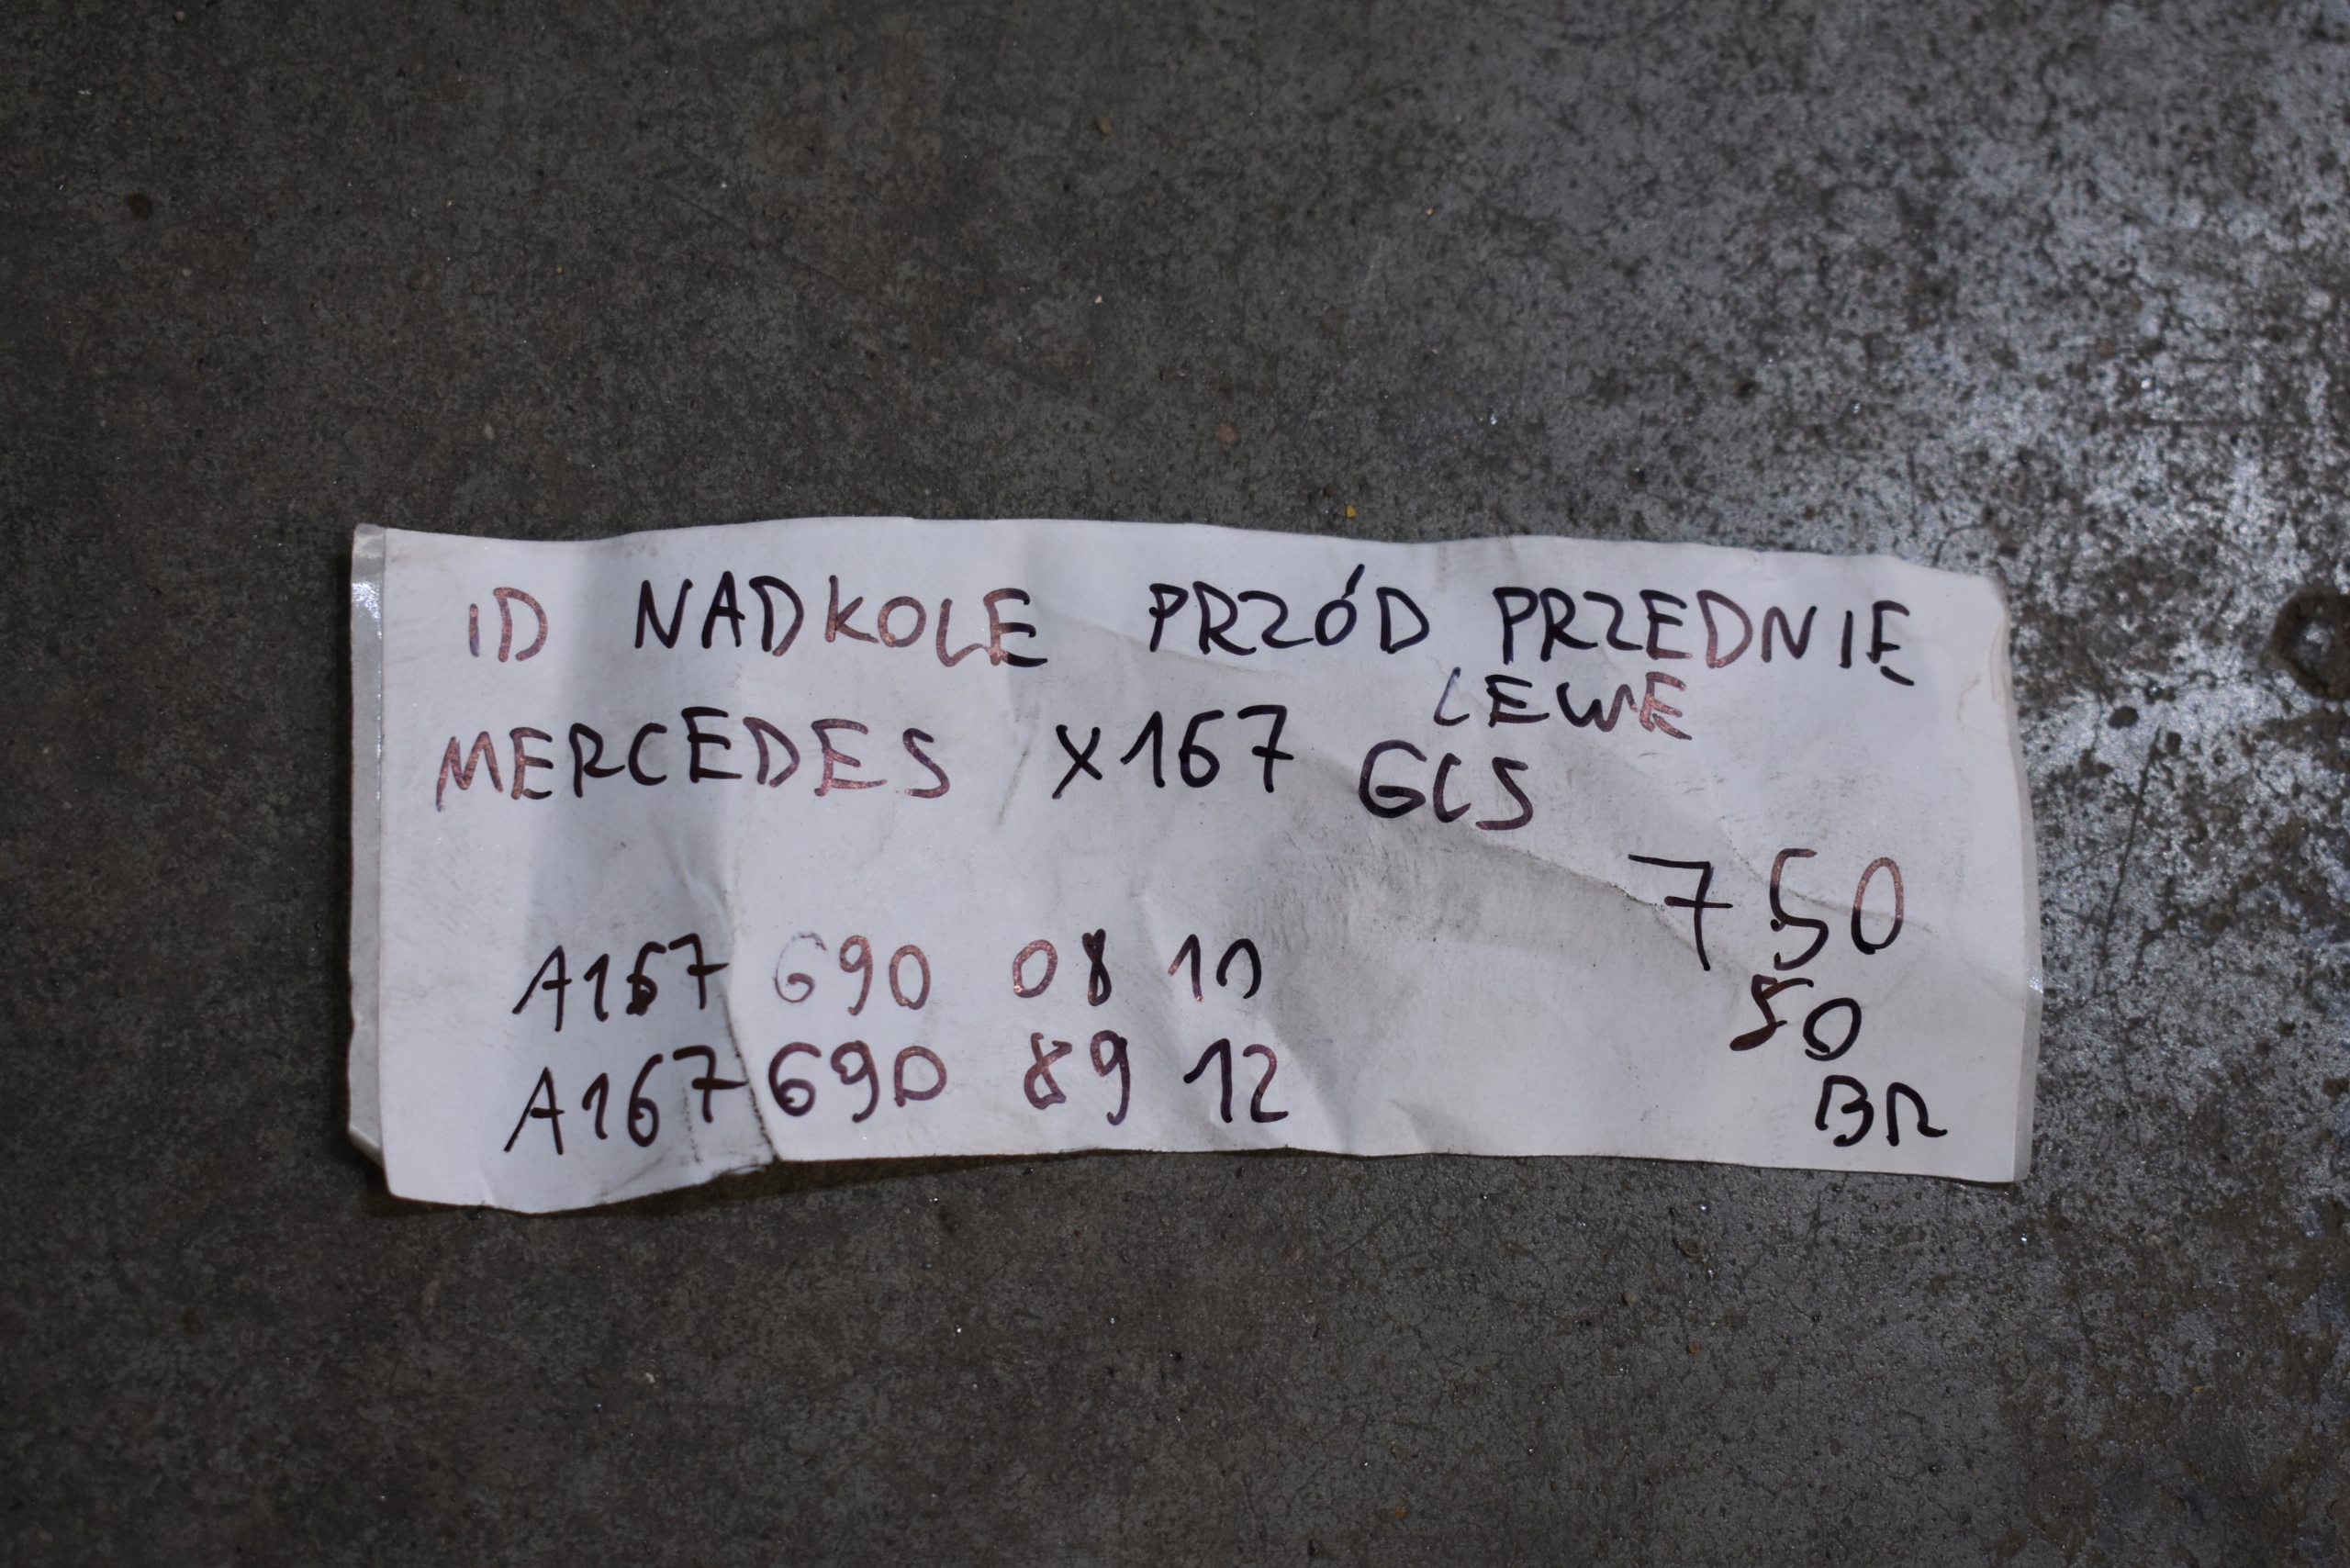 ID NADKOLE PRZÓD PRZEDNIE
LEWE
MERCEDES X167 GLS
750
A167 690 08 10
50
A167 690 89 12
BR